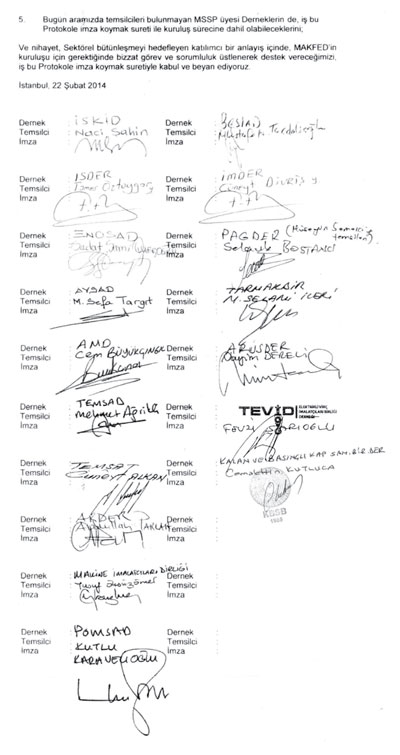 5. Bugün aramızda temsilcileri bulunmayan MSSP üyesi Derneklerin de, iş bu
Protokole imza koymak sureti ile kuruluş sürecine dahil olabileceklerini;
Ve nihayet, Sektörel bütünleşmeyi hedefleyen katılımcı bir anlayış içinde, MAKFED'in
kuruluşu için gerektiğinde bizzat görev ve sorumluluk üstlenerek destek vereceğimizi,
iş bu Protokole imza koymak suretiyle kabul ve beyan ediyoruz.
İstanbul, 22 Şubat 2014
Dernek : İSKİD
Temsilci : Naci Şahin
İmza
Dernek : BESİAD
Temsilci : Mustafa
İmza
Dernek : İSDER
Temsilci
İmza
Dernek : İMDER
Temsilci : Cüneyt Divriş
İmza
Dernek : ENOSAD
Temsilci
İmza
Dernek : PAGDER
Temsilci : Selçuk BOSTANCI
İmza
Dernek : AYSAD
Temsilci : M. Sefa Targıt
İmza
Dernek : TARMAKBİR
Temsilci : M. SELAMİ İLERİ
İmza
Dernek : AMD
Temsilci : Cem BÜYÜKÇINGIL
İmza
Dernek : ARÜSDER
Temsilci : DERELİ
İmza
Dernek : TEMSAD
Temsilci : Mehmet Ağrikli
İmza
Dernek : TEVİD
Temsilci : FEVZİ
İmza
Dernek : TEMSAT
Temsilci : Cüneyt ALKAN
İmza
KAZAN VE BASINÇLI KAP SAN. BİR. DER
Cemalettin KUTLUCA
KBSB
Dernek : AKDER
Temsilci : Abdullah
İmza
Dernek : MAKİNE İMALATÇILARI BİRLİĞİ
Temsilci : Yusuf Öksüzömer
İmza
Dernek : POMSAD
Temsilci : KUTLU
İmza : KARAVELİOĞLU